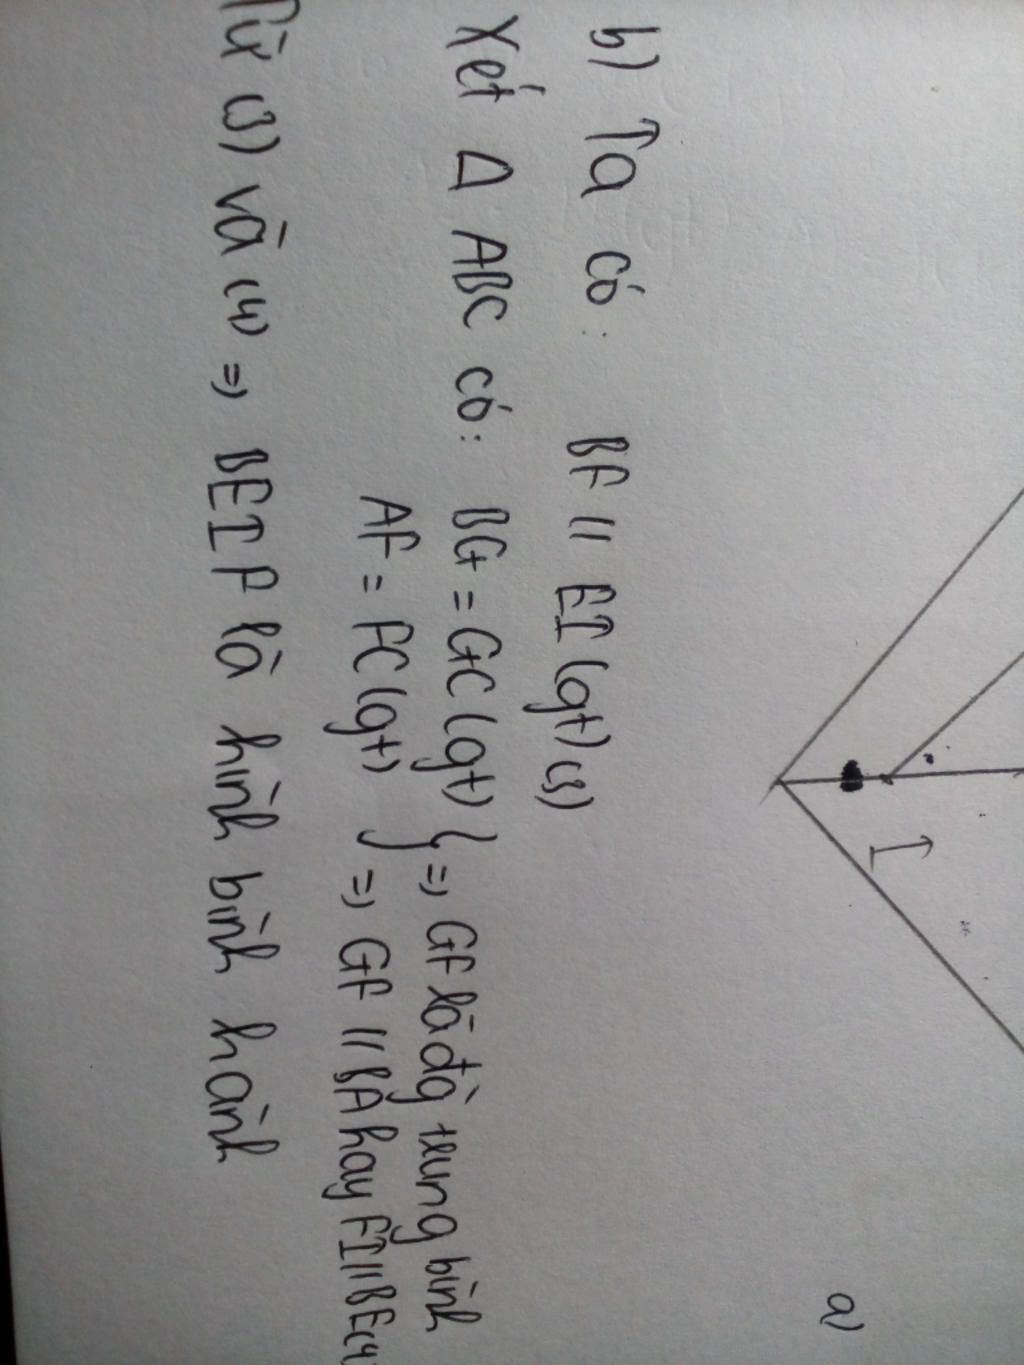 I
a)
b) Ta có: BF // EI (gt) (3)
Xét Δ ABC có: BG = GC (gt) } => GF là đg trung bình
AF = FC (gt) } => GF // BA hay FI // BE (4)
Từ (3) và (4) => BEIF là hình bình hành